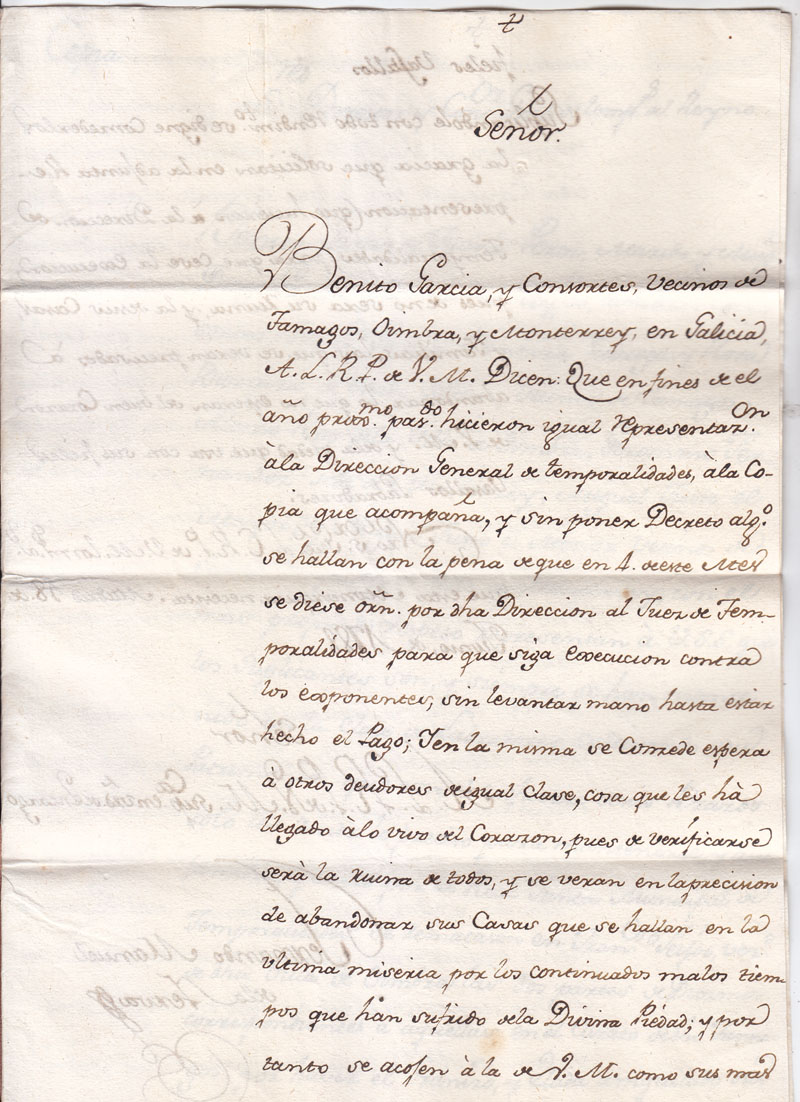 Señor.
Benito Garcia, y Consortes, vecinos de
Tamagos, Oimbra, y Monterrey, en Galicia,
A. L. R. P. de V. M. Dicen: Que en fines de el
año proxmo. pasdo. hicieron igual representazon.
à la Direccion General de temporalidades, à la Co-
pia que acompaña, y sin poner Decreto algo.
se hallan con la pena de que en 4. de este Mes
se diese orn. por dha Direccion al Juez de Tem-
poralidades para que siga execucion contra
los exponentes, sin levantar mano hasta estar
hecho el Pago; Y en la misma se Concede espera
à otros deudores de igual clase, cosa que les hà
llegado àlo vivo del Corazon, pues de verificarse
serà la ruina de todos, y se veran en la precision
de abandonar sus Casas que se hallan en la
ultima miseria por los continuados malos tiem-
pos que han sufrido dela Divina Piedad; y por
tanto se acojen à la de V. M. como sus mas